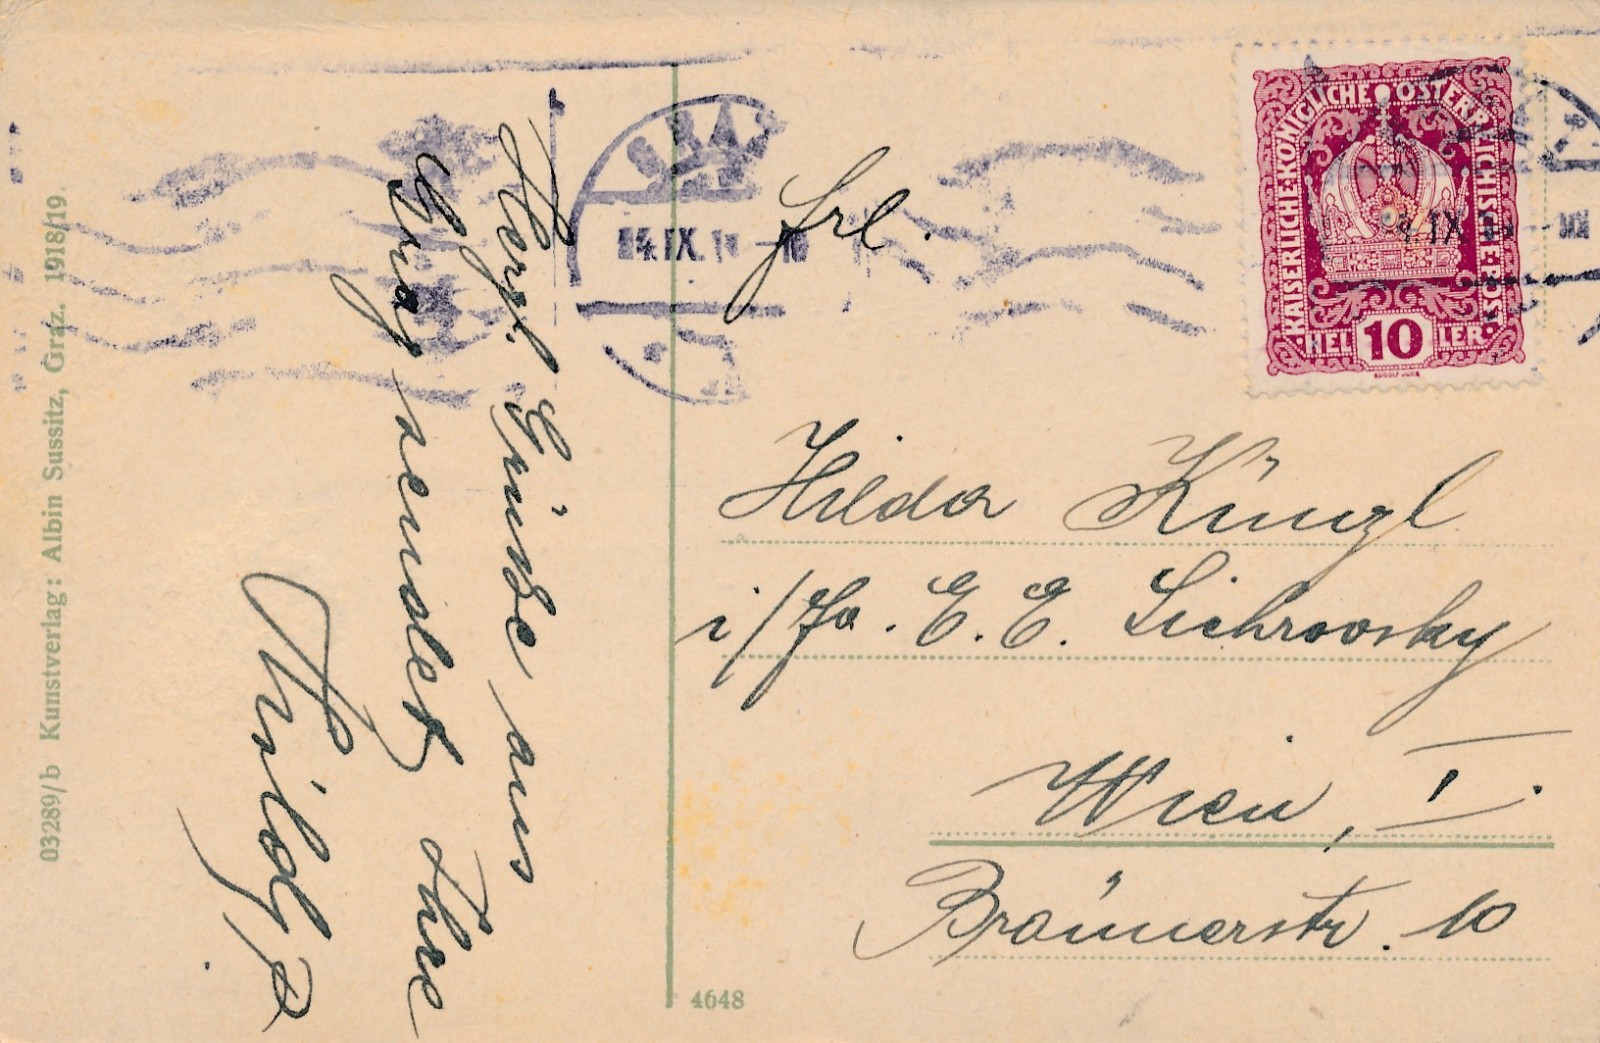 03289/b Kunstverlag: Albin Sussitz, Graz. 1918/19.
Herzl. Grüsse aus
Graz sendet Ihre
GRAZ
IX. 1
KAISERLICHE·KÖNIGLICHE ÖSTERREICHISCHE·POST
HELLER
10
IX
Frl.
Hilda Künzl
i/Fa. E. E. Lichrovsky
Wien, I.
Bräunerstr. 10
4648